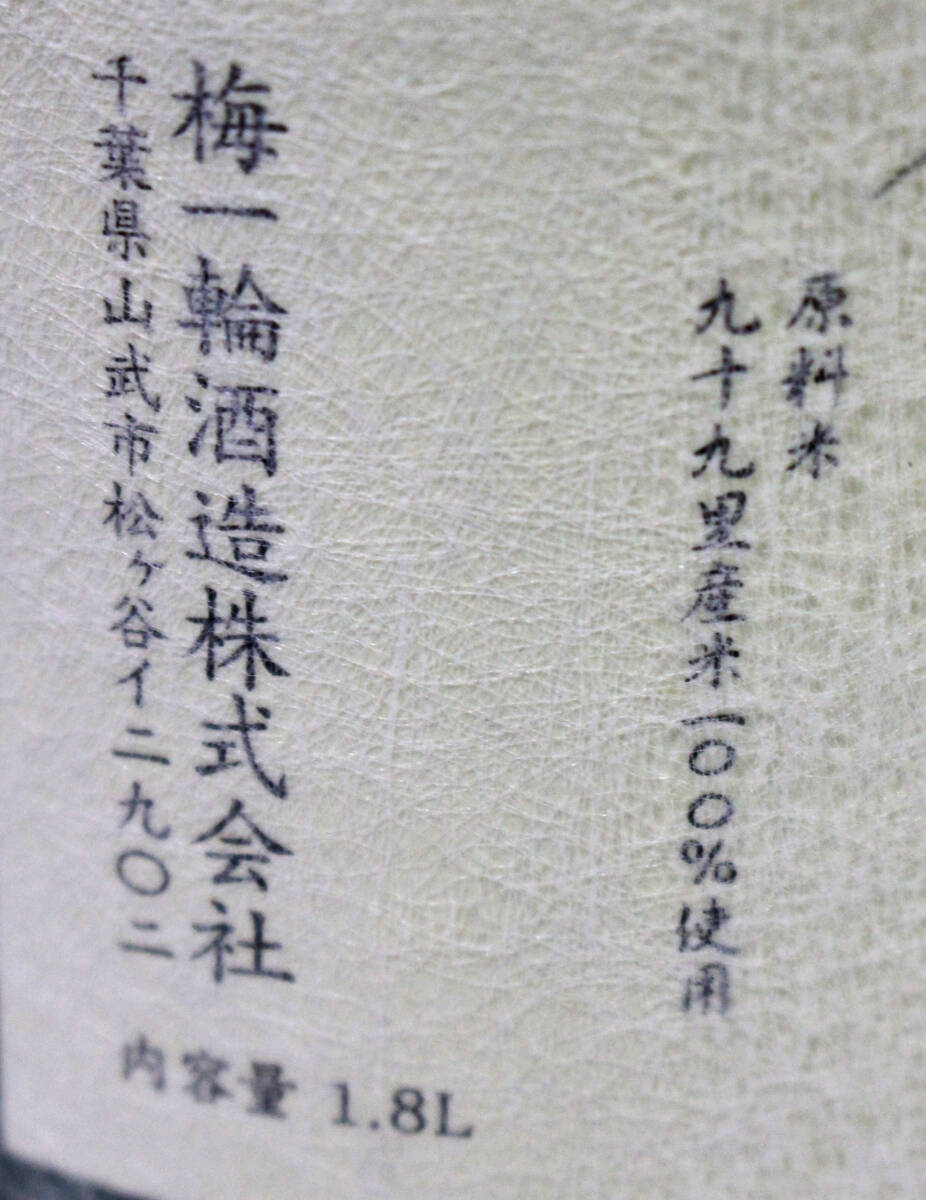 原料米
九十九里産米一〇〇%使用
梅一輪酒造株式会社
千葉県山武市松ヶ谷イ二九〇二
内容量 1.8L